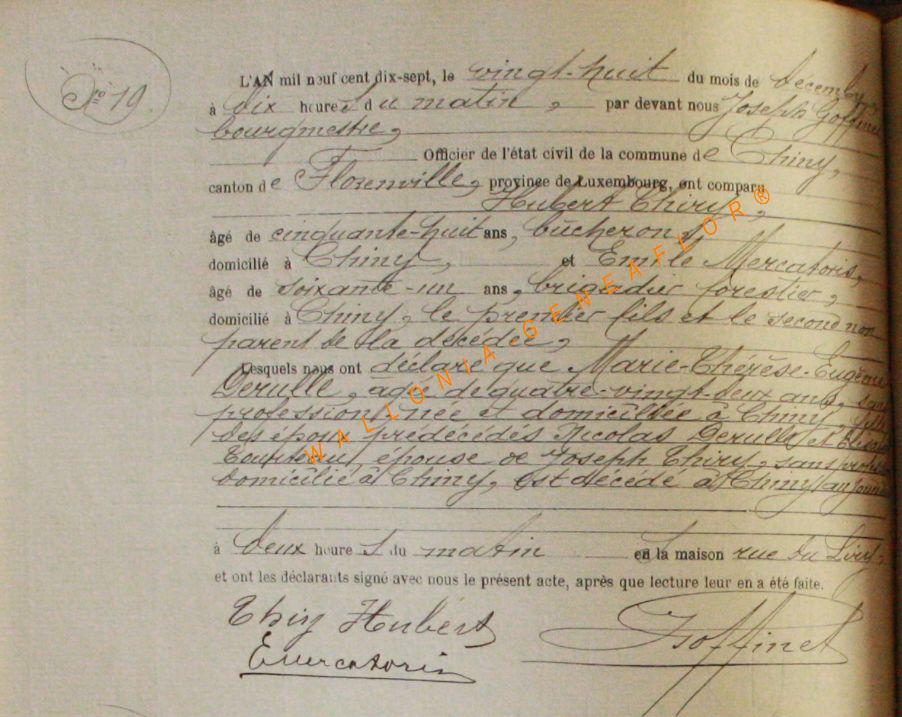 Nro 19.
L'AN mil neuf cent dix-sept, le vingt-huit du mois de decembre
à dix heures du matin, par devant nous Joseph Goffinet
bourgmestre,
Officier de l'état civil de la commune de Chiny,
canton de Florenville, province de Luxembourg, ont comparu
Hubert Thiry,
âgé de cinquante-huit ans, bûcheron,
domicilié à Chiny, et Emile Mercatoris,
âgé de soixante-un ans, brigadier forestier,
domicilié à Chiny, le premier fils et le second non
parent de la décédée,
Lesquels nous ont déclaré que Marie-Thérèse-Eugénie
Derulle, agé de quatre-vingt-deux ans, sans
profession, née et domiciliée à Chiny, fille
des époux prédécédés Nicolas Derulle et
épouse de Joseph Thiry, sans profession
domicilié à Chiny, est décédé à Chiny aujourd'hui
à deux heures du matin en la maison rue du
et ont les déclarants signé avec nous le présent acte, après que lecture leur en a été faite.
Thiry Hubert
Goffinet
E Mercatoris
WALLONIA GENEAFLOR®